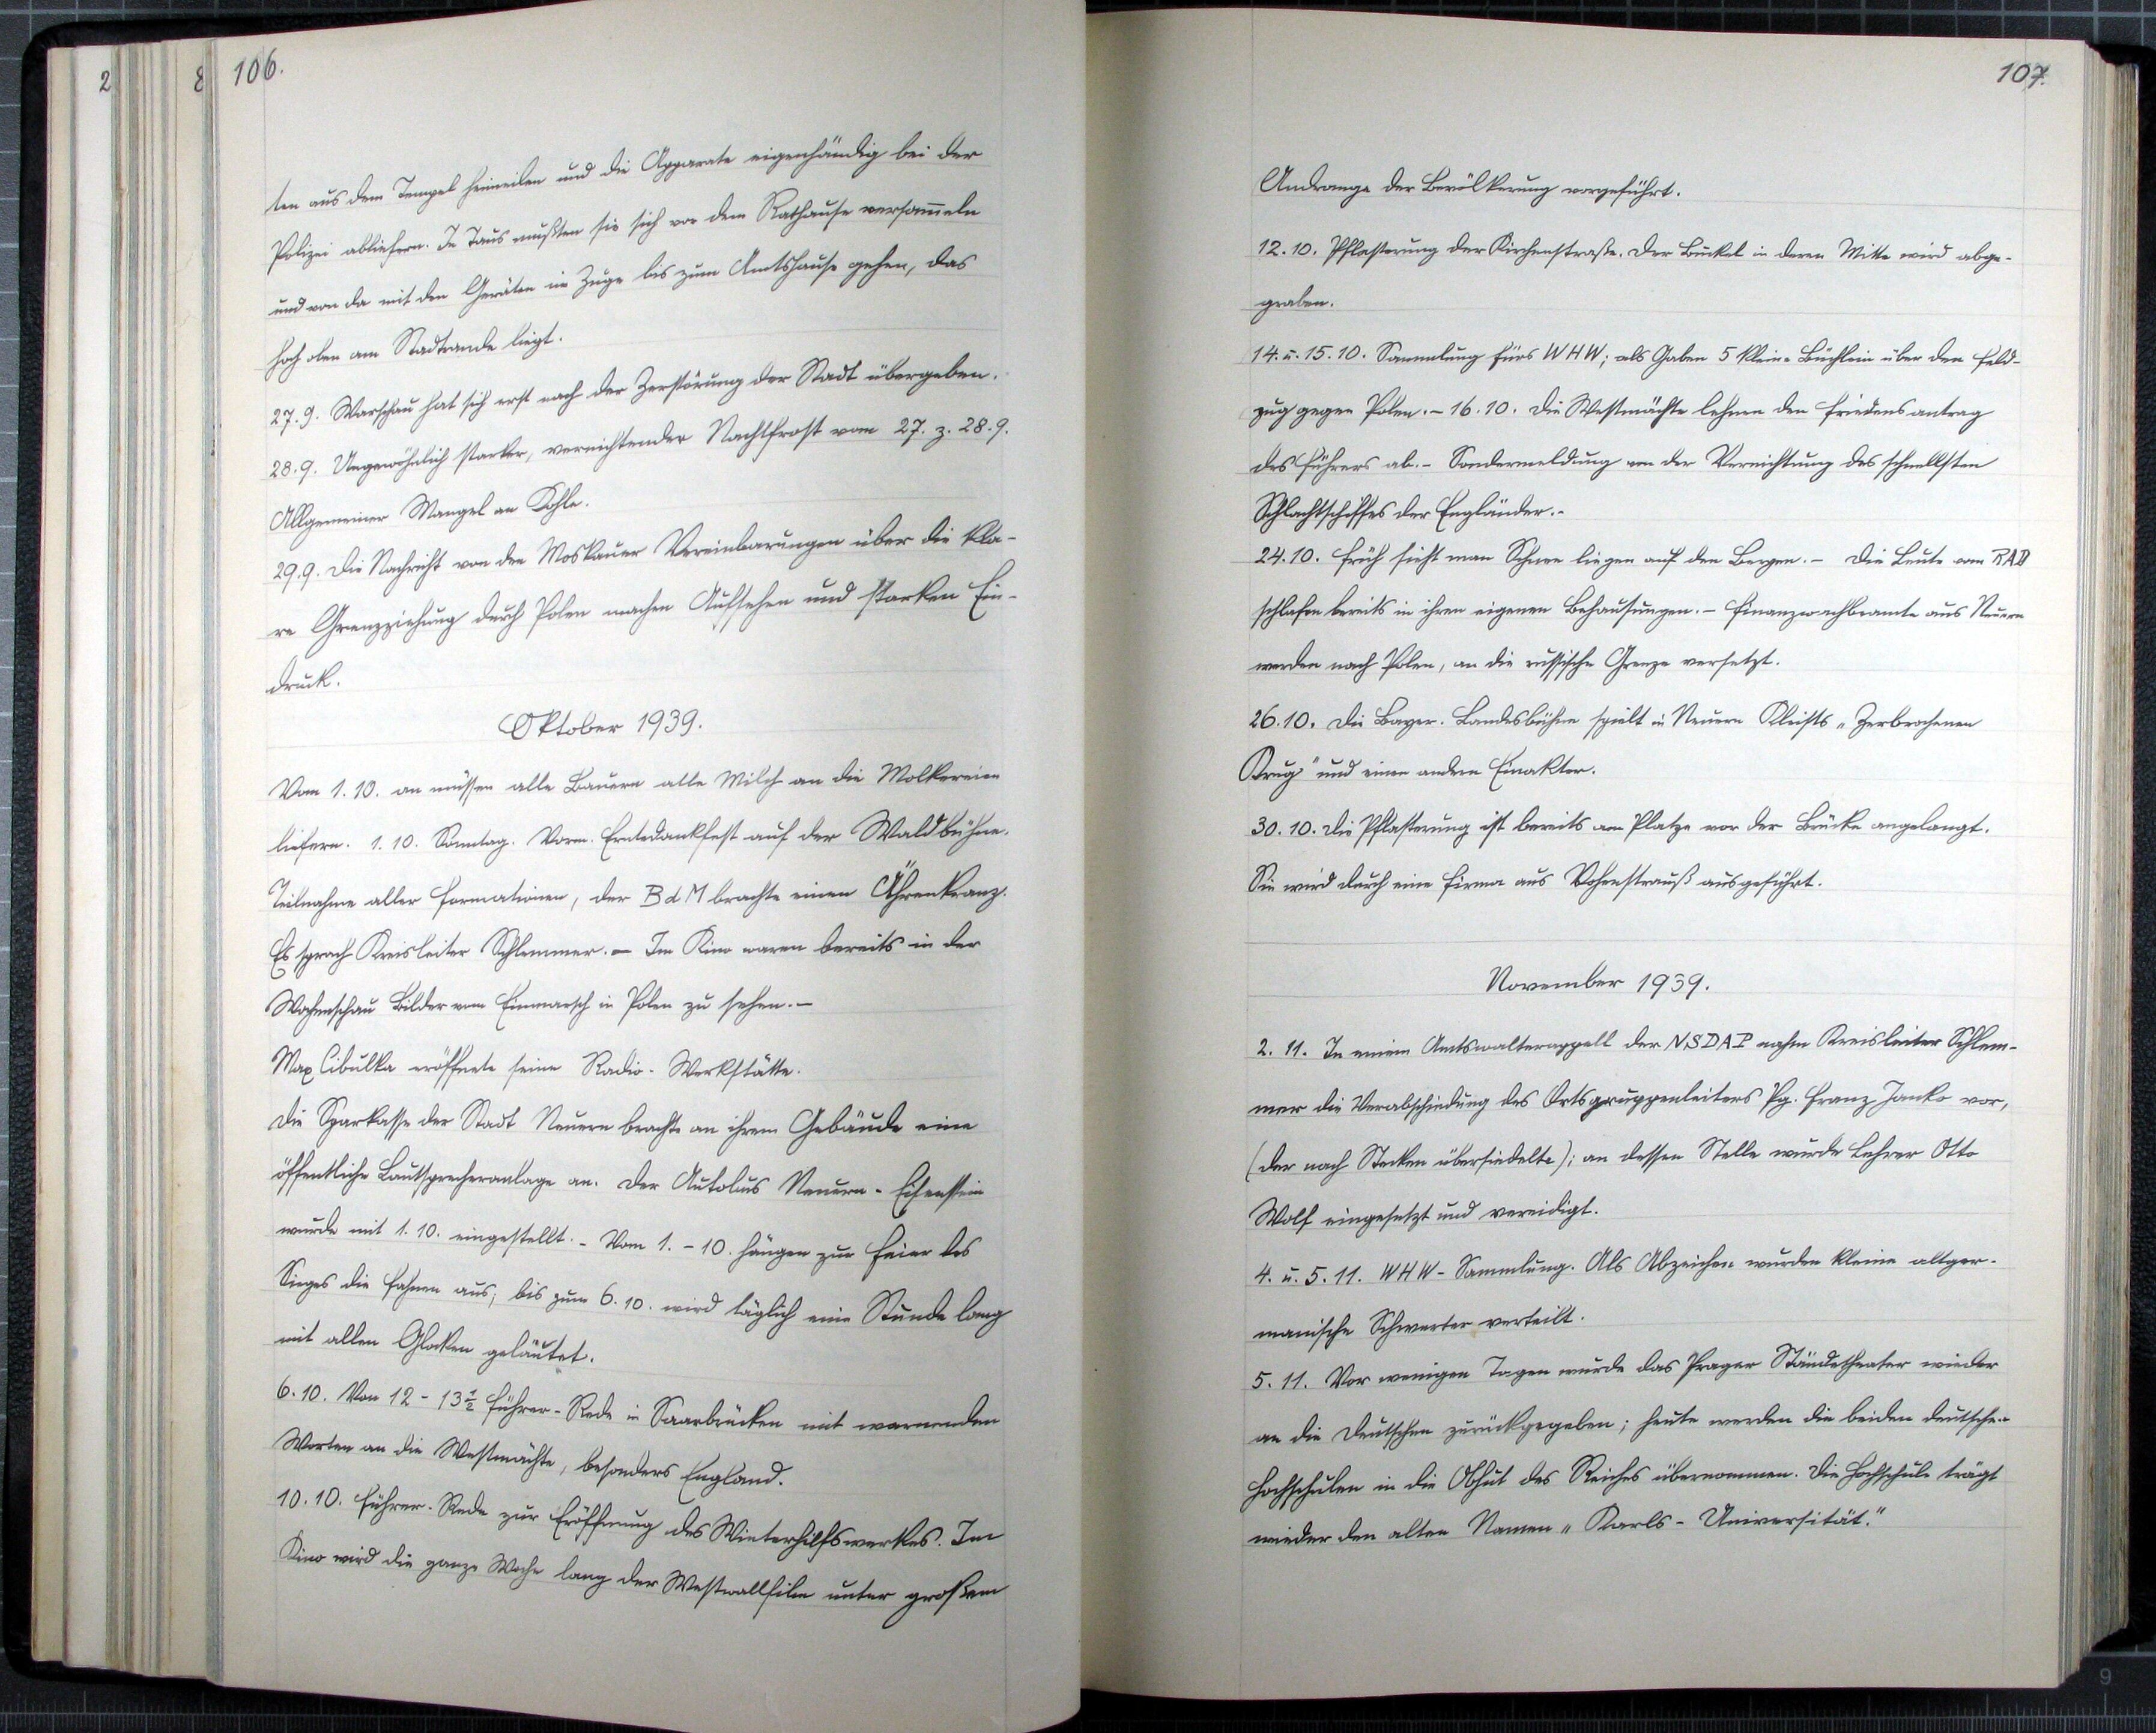 106.
ten aus dem Tempel heimeilen und die Apparate eigenhändig bei der
Polizei abliefern. In Taus mußten sie sich vor dem Rathause versam̄eln
und von da mit den Geräten im Zuge bis zum Amtshause gehen, das
hoch oben am Stadtrande liegt.
27.9. Warschau hat sich erst nach der Zerstörung der Stadt übergeben.
28.9. Ungewöhnlich starker, vernichtender Nachtfrost vom 27. z. 28.9.
Allgemeiner Mangel an Kohle.
29.9. Die Nachricht von den Moskauer Vereinbarungen über die kla-
re Grenzziehung durch Polen machen Aufsehen und starken Ein-
druck.
Oktober 1939.
Vom 1.10. an müssen alle Bauern alle Milch an die Molkereien
liefern. 1.10. Sonntag. Vorm. Erntedankfest auf der Waldbühne.
Teilnahme aller Formationen, der BdM brachte einen Ährenkranz.
Es sprach Kreisleiter Schlemmer. – Im Kino waren bereits in der
Wochenschau Bilder vom Einmarsch in Polen zu sehen. –
Max Cibulka eröffnete seine Radio-Werkstätte.
Die Sparkasse der Stadt Neuern brachte an ihrem Gebäude eine
öffentliche Lautsprecheranlage an. Der Autobus Neuern-Eisenstein
wurde mit 1.10. eingestellt. – Vom 1.–10. hängen zur Feier des
Sieges die Fahnen aus; bis zum 6.10. wird täglich eine Stunde lang
mit allen Glocken geläutet.
6.10. Von 12–13½ Führer-Rede in Saarbrücken mit warnenden
Worten an die Westmächte, besonders England.
10.10. Führer-Rede zur Eröffnung des Winterhilfswerkes. Im
Kino wird die ganze Woche lang der Westwallfilm unter großem
107.
Andrange der Bevölkerung vorgeführt.
12.10. Pflasterung der Kirchenstraße. Der Buckel in deren Mitte wird abge-
graben.
14. u. 15.10. Sammlung fürs WHW; als Gaben 5 kleine Büchlein über den Feld-
zug gegen Polen. – 16.10. Die Westmächte lehnen den Friedensantrag
des Führers ab. – Sondermeldung von der Vernichtung des schnellsten
Schlachtschiffes der Engländer. –
24.10. Früh sieht man Schnee liegen auf den Bergen. – Die Leute vom RAD
schlafen bereits in ihren eigenen Behausungen. – Finanzwachbeamte aus Neuern
werden nach Polen, an die russische Grenze versetzt.
26.10. Die Bayer. Landesbühne spielt in Neuern Kleists „Zerbrochenen
Krug" und einen andern Einakter.
30.10. Die Pflasterung ist bereits am Platze vor der Brücke angelangt.
Sie wird durch eine Firma aus Vohenstrauß ausgeführt.
November 1939.
2.11. In einem Amtswalterappell der NSDAP nahm Kreisleiter Schlem-
mer die Verabschiedung des Ortsgruppenleiters Pg. Franz Janko vor,
(der nach Stecken übersiedelte); an dessen Stelle wurde Lehrer Otto
Wolf eingesetzt und vereidigt.
4. u. 5.11. WHW-Sammlung. Als Abzeichen wurden kleine altger-
manische Schwerter verteilt.
5.11. Vor wenigen Tagen wurde das Prager Ständetheater wieder
an die Deutschen zurückgegeben; heute werden die beiden deutschen
Hochschulen in die Obhut des Reiches übernommen. Die Hochschule trägt
wieder den alten Namen „Karls-Universität."
2
8
9